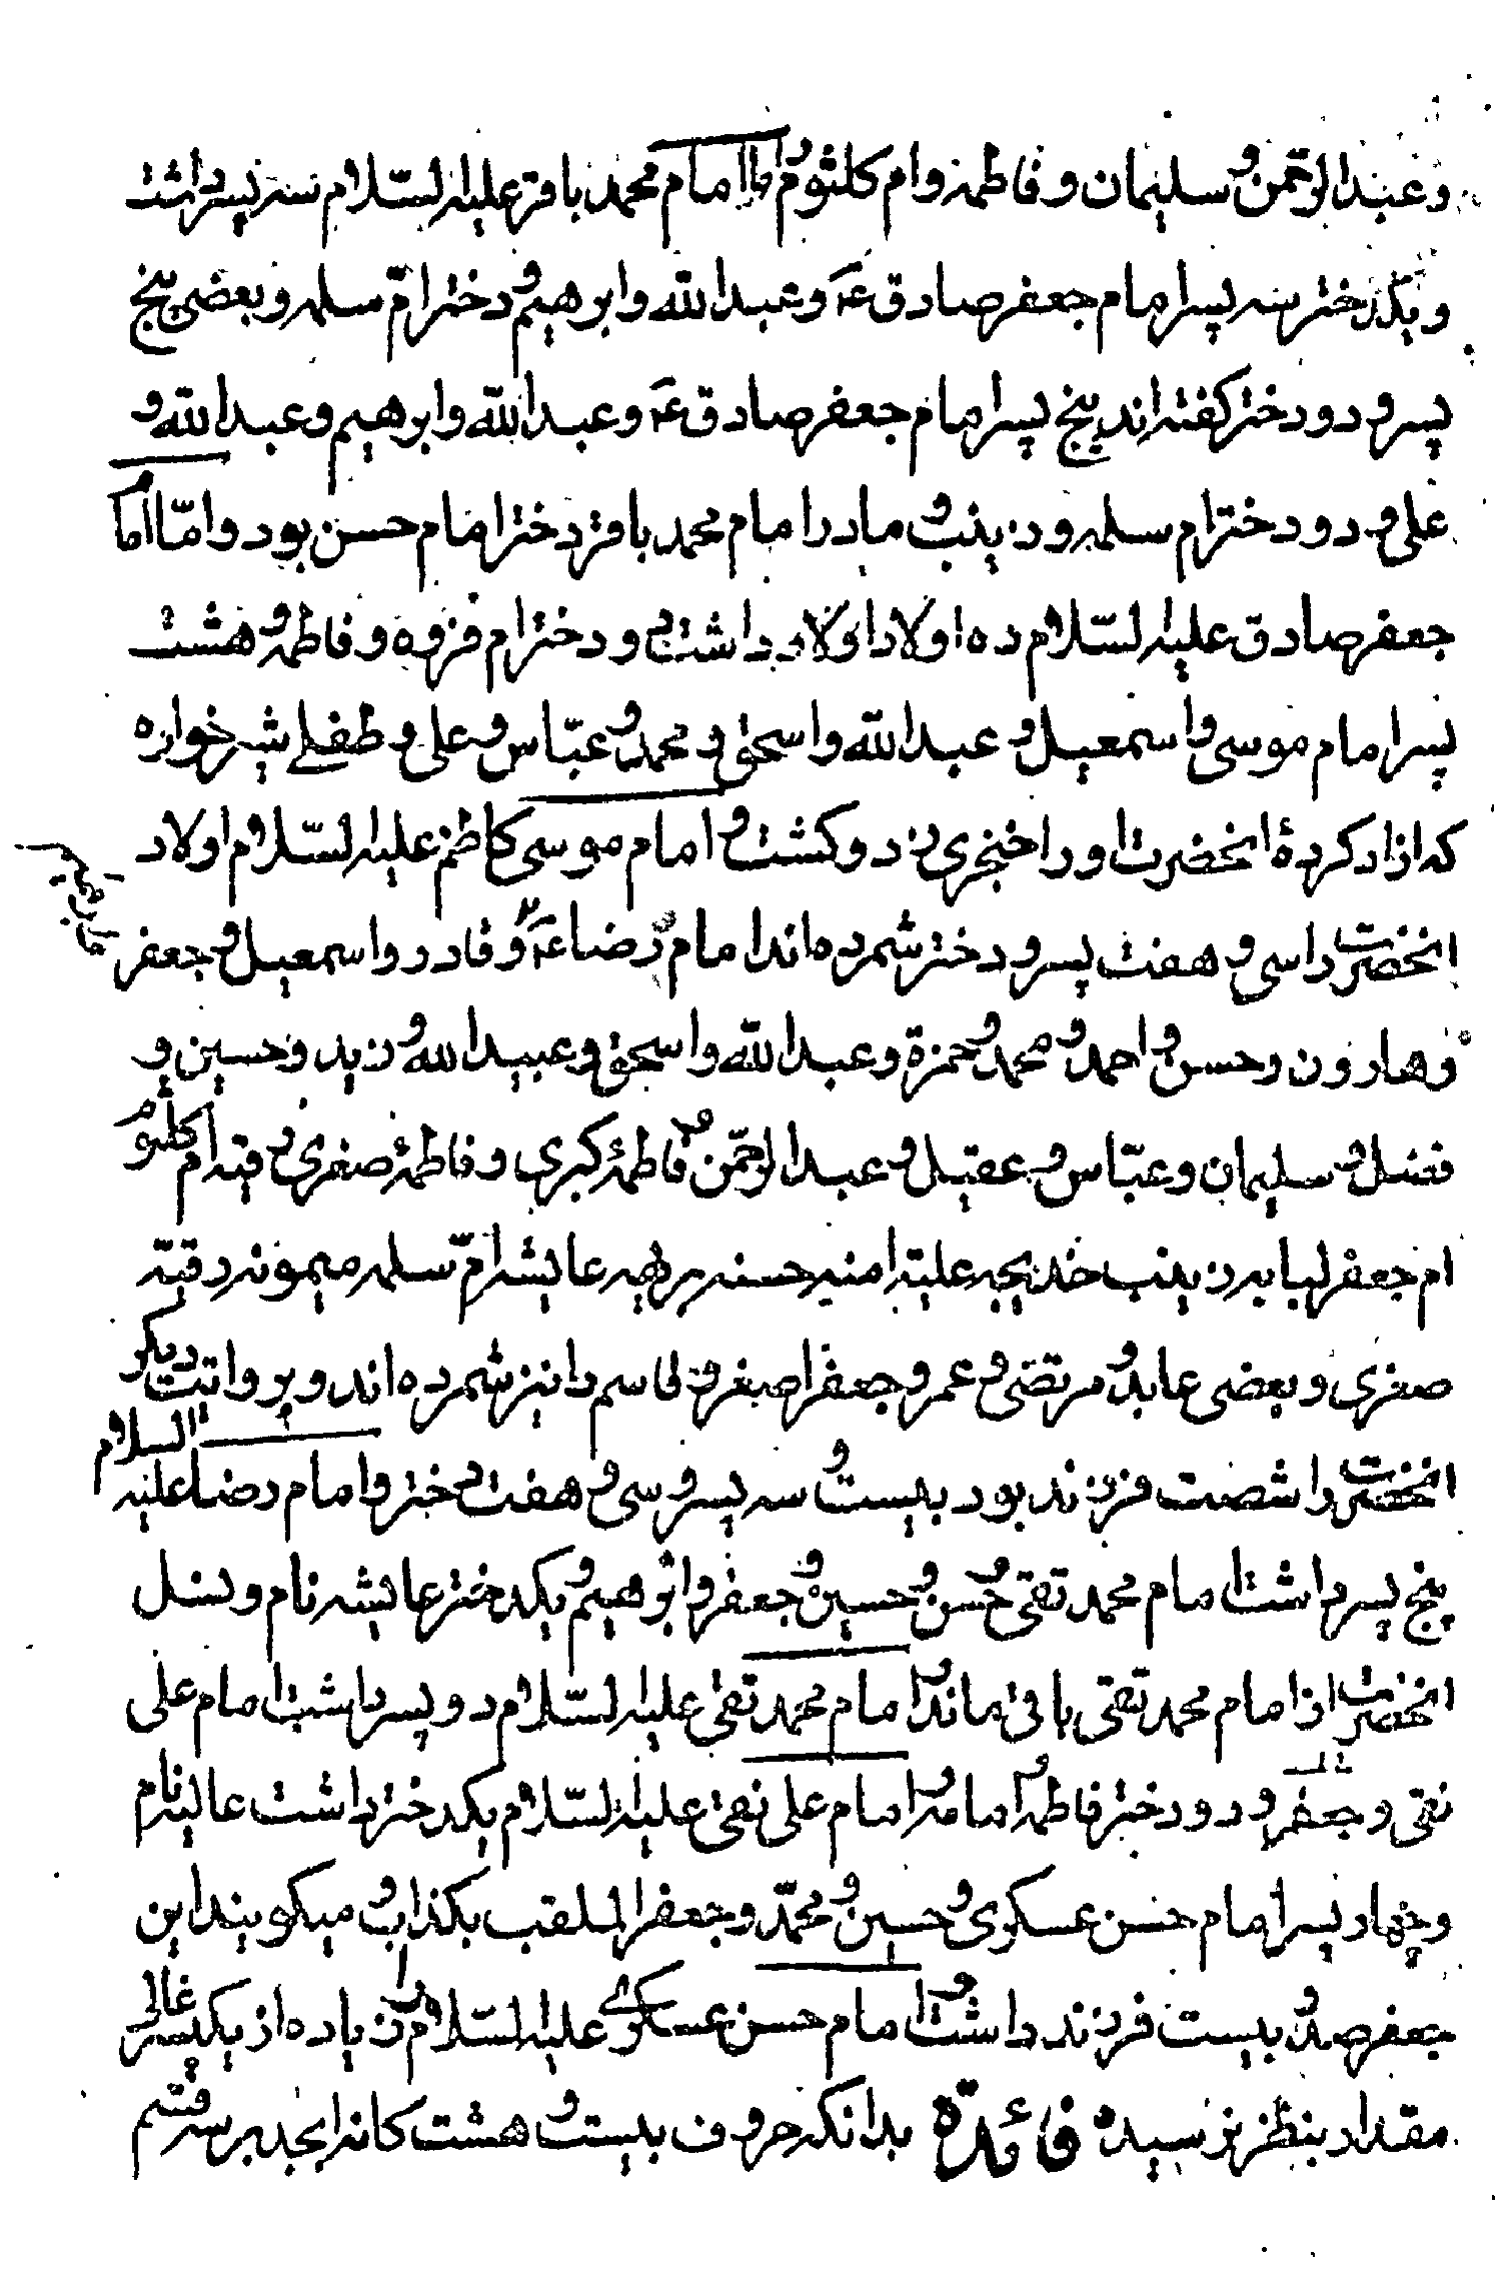 و عبد الرحمن و سلیمان و فاطمه و ام کلثوم و اما امام محمد باقر علیه السّلام سه پسر داشت
و یکدختر سه پسر امام جعفر صادق ع و عبد الله و ابرهیم و دختر امّ سلمه و بعضی پنج
پسر و دو دختر کفته اند پنج پسر امام جعفر صادق ع و عبد الله و ابرهیم و عبد الله و
علی و دو دختر ام سلمه و زینب و مادر امام محمد باقر دختر امام حسن بود و امّا امام
جعفر صادق علیه السّلام ده اولاد اولاد داشت دو دختر ام فروه و فاطمه و هشت
پسر امام موسی و اسمعیل و عبد الله و اسحق و محمد و عبّاس و علی و طفلے شیر خواره
که ازاد کردهٔ انحضرت او را خنجری زد و کشت و امام موسی کاظم علیه السّلام اولاد
انحضرت را سی و هفت پسر و دختر شمرده اند امام رضا ع و قادر و اسمعیل و جعفر
و هارون و حسن و احمد و محمد و حمزة و عبد الله و اسحق و عبید الله و زید و حسین و
فضل و سلیمان و عبّاس و عقیل و عبد الرحمّن و فاطمهٔ کبری و فاطمهٔ صغری رقیه ام کلثوم
ام جعفر لبابه زینب خدیجه علیّه امنیه حسنه بریهه عایشه امّ سلمه میمونه رقیّه
صغری و بعضی عابد و مرتضی و عمر و جعفر اصغر و قاسم را نیز شمرده اند و بروایت دیکر
انحضرت را شصت فرزند بود بیست و سه پسر و سی و هفت دختر و امام رضا علیه السلام
پنج پسر داشت امام محمد تقی و حسن و حسین و جعفر و ابرهیم و یکدختر عایشه نام و نسل
انحضرت از امام محمد تقی باقی ماند و امام محمد تقی علیه السّلام دو پسر داشت امام علی
نقی و جعفر و دو دختر فاطمه امامه و امام علی نقی علیه السّلام یکدختر داشت عالیه نام
و چهار پسر امام حسن عسکری و حسین و محمّد و جعفر الملقب بکذاب و میکویند این
جعفر صد و بیست فرزند داشت و امام حسن عسکری علیه السّلام را زیاده از یکپسر عالی
مقدار بنظر نرسیده فائدة بدانکه حروف بیست و هشت کانه ابجد بر سه قسم